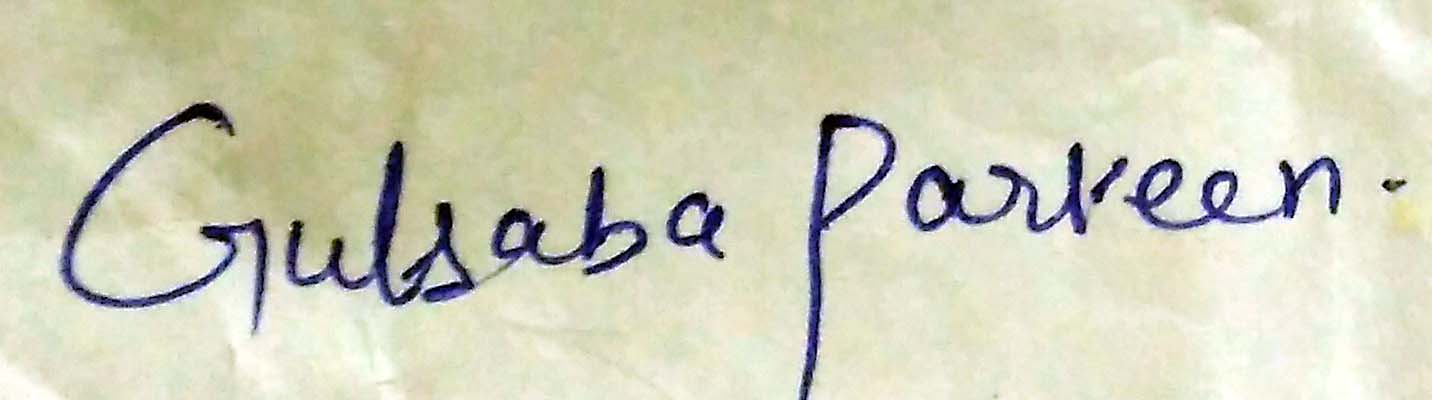 Gulsaba Parveen.